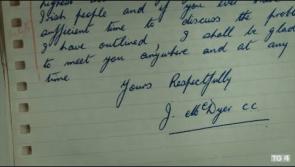 Irish people and if you ever
sufficient time to discuss the prob
I have outlined, I shall be glad
to meet you anywhere and at any
time
Yours Respectfully
J. McDyer CC
TG4